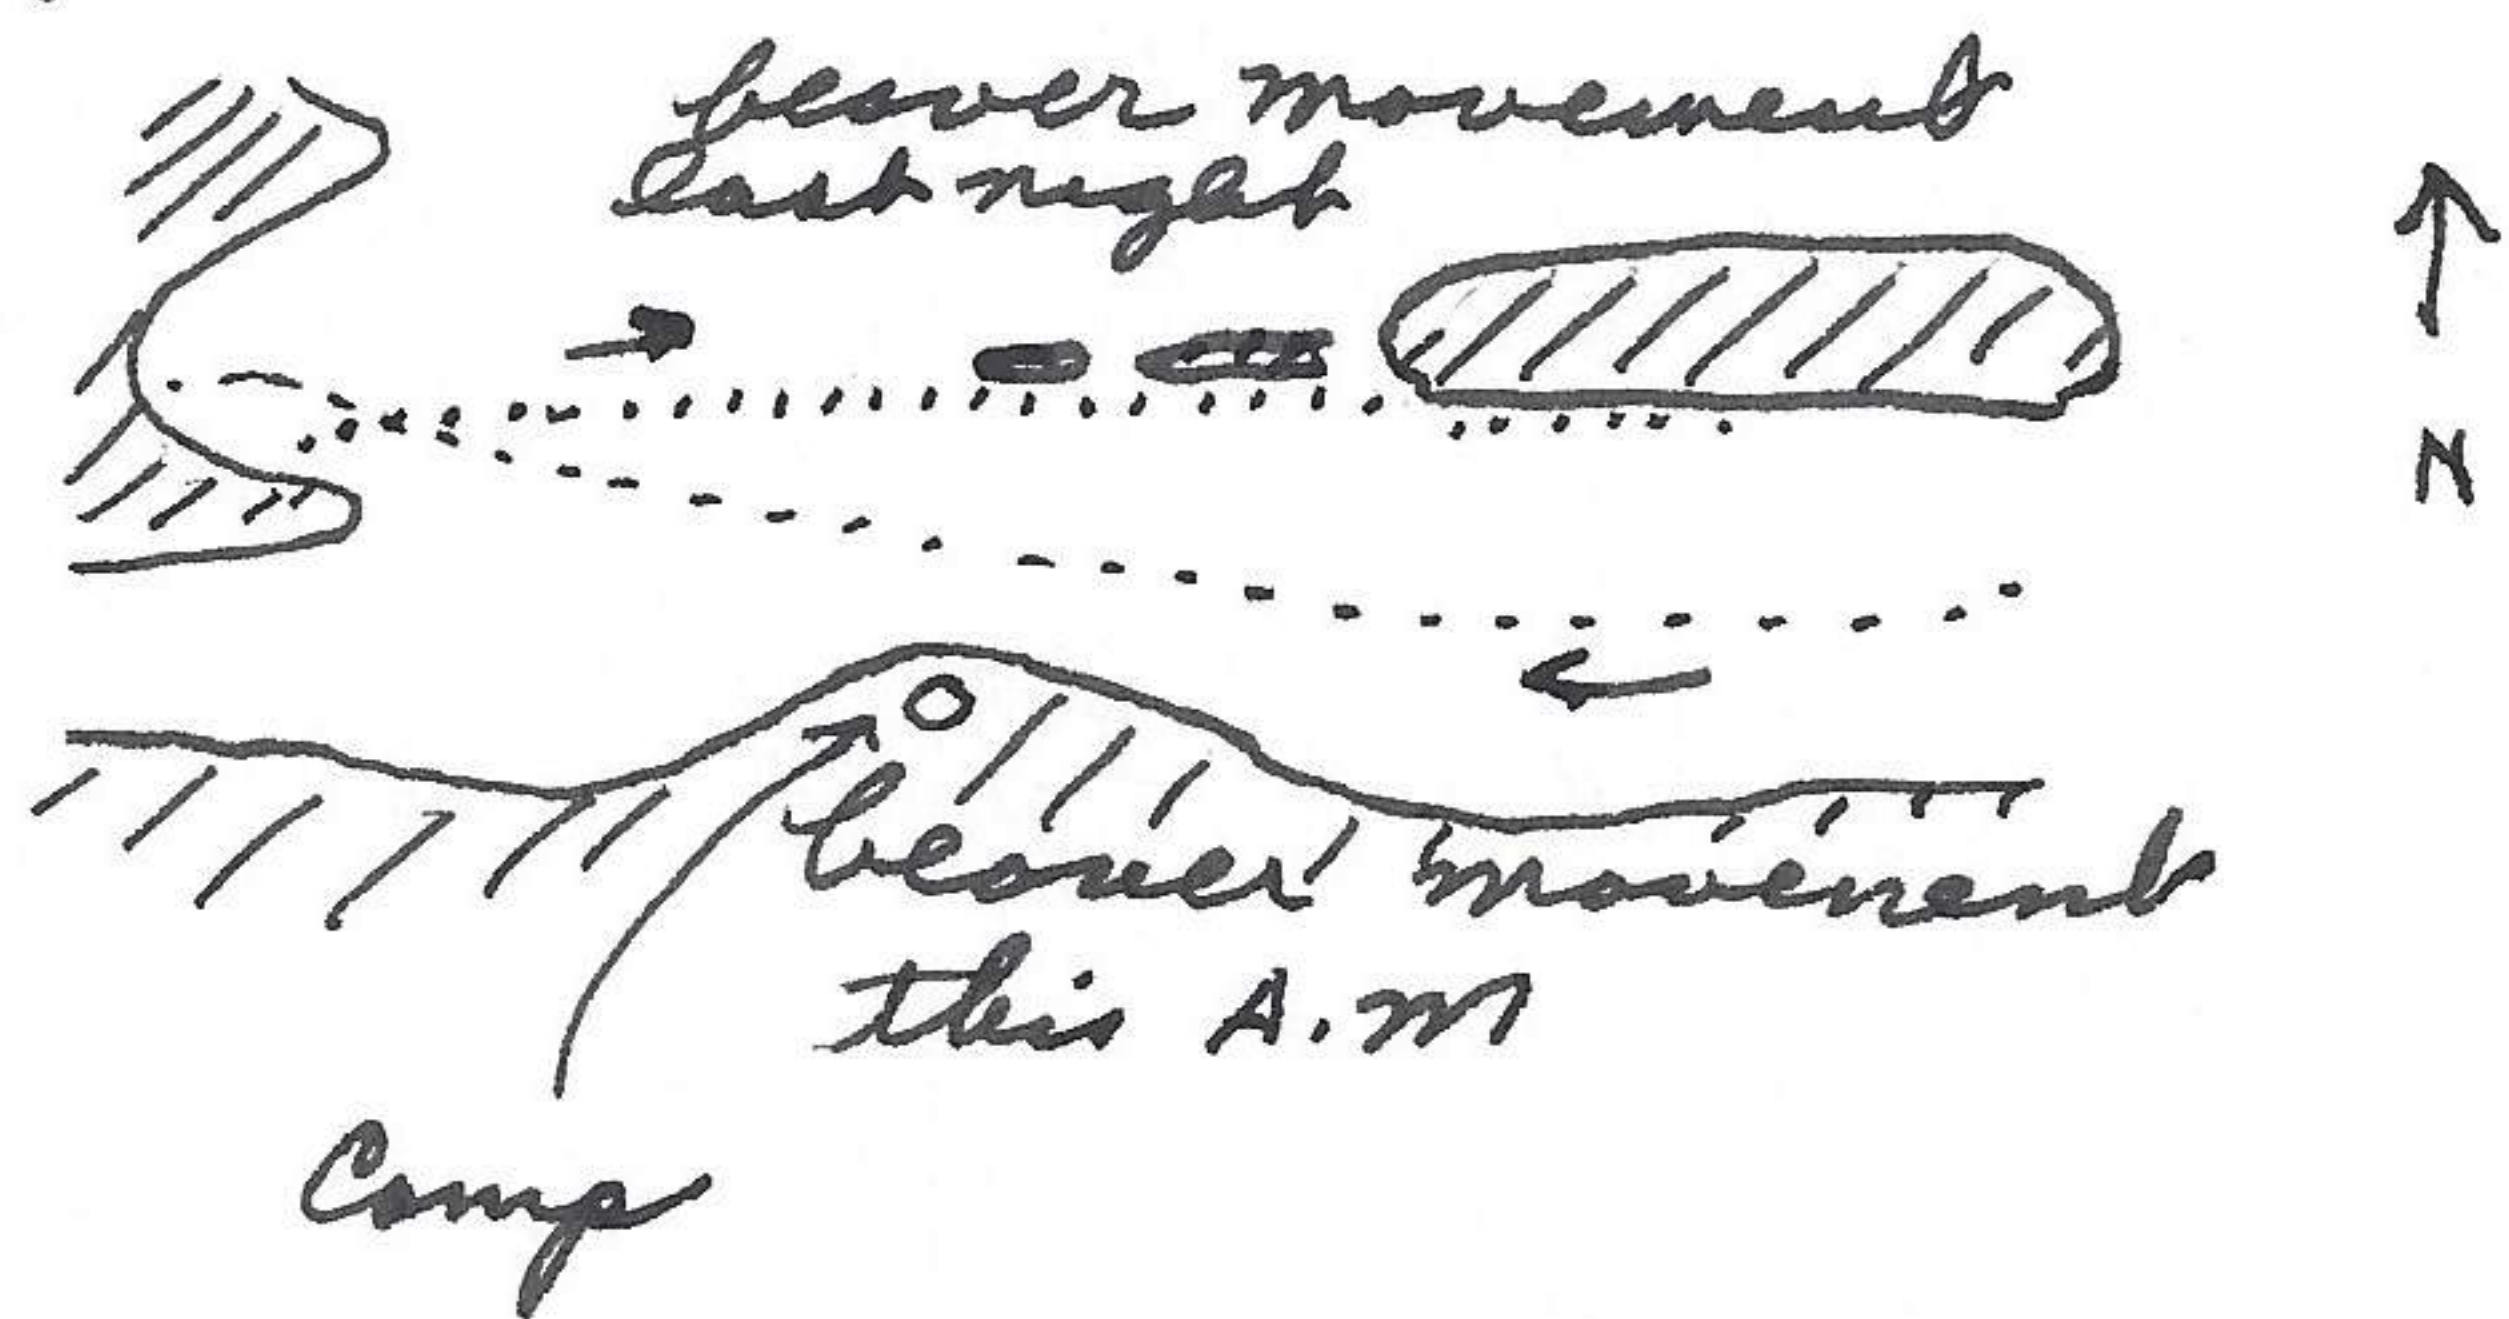 beaver movement
last night
N
beaver movement
this A.M
Camp